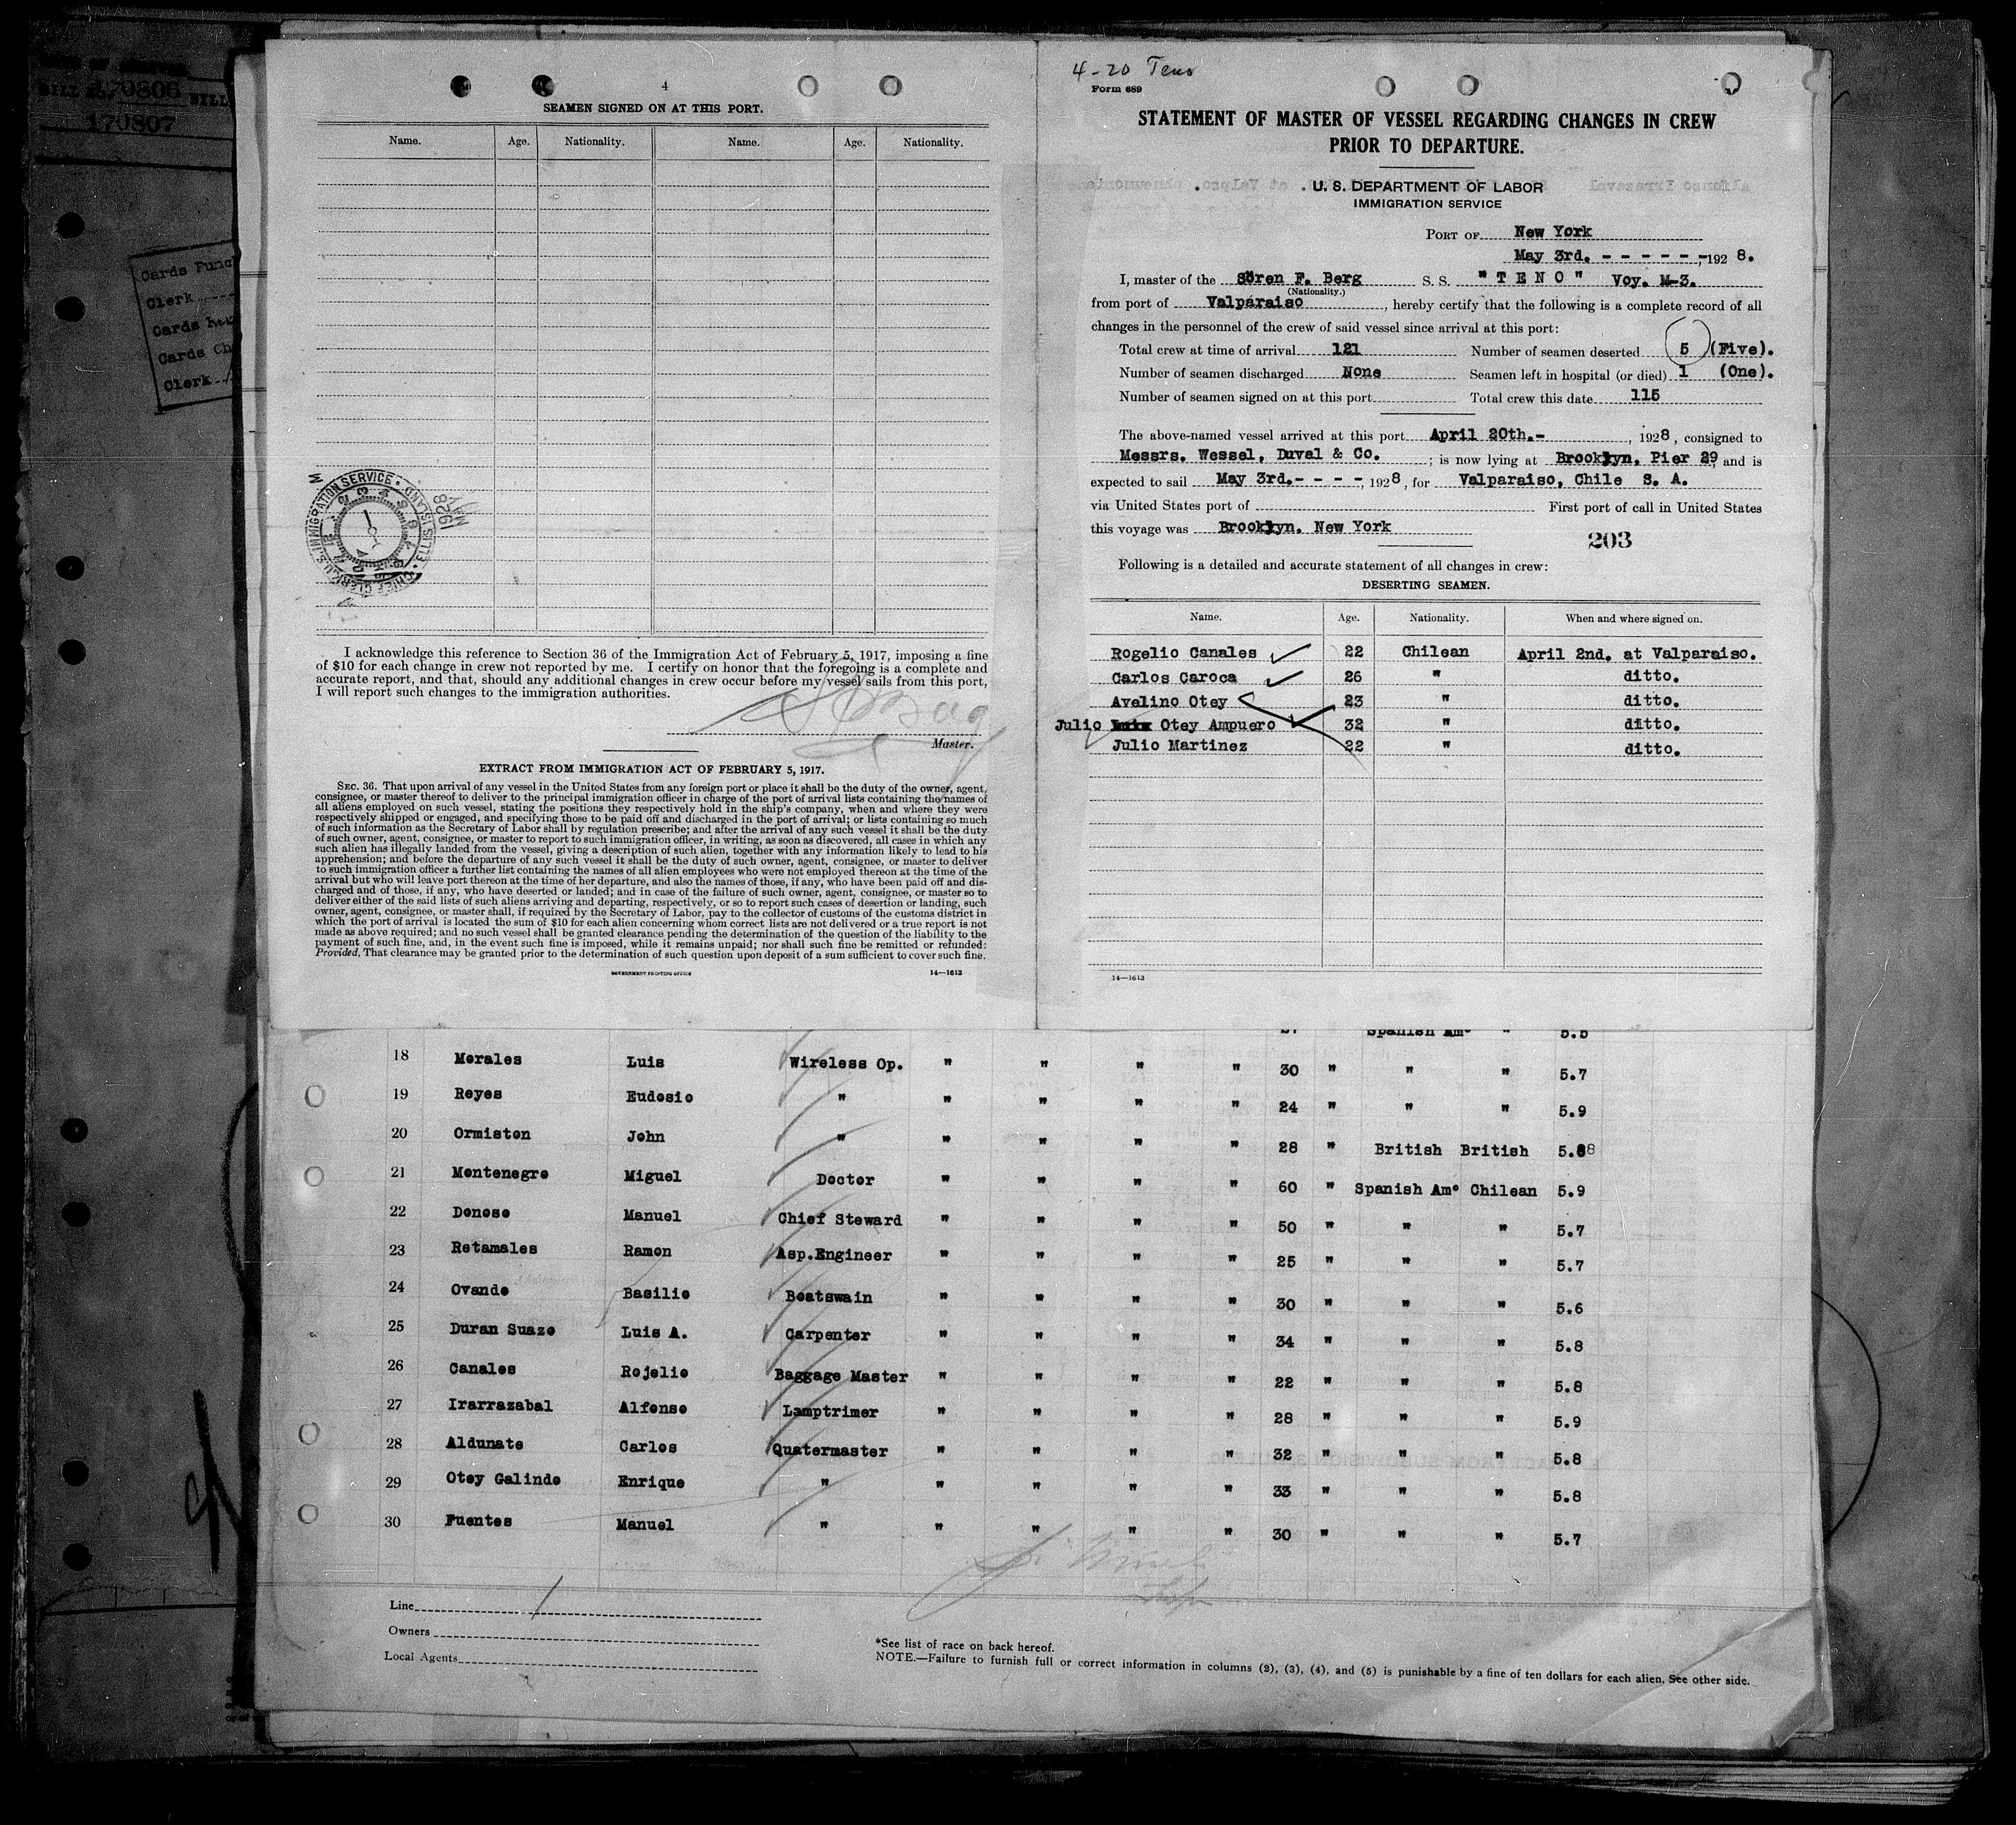 170806
BILL
170807
Cards Punc
Clerk
Cards
Cards Ch
Clerk
4
SEAMEN SIGNED ON AT THIS PORT.
Name. Age. Nationality. Name. Age. Nationality.
IMMIGRATION SERVICE
ELLIS ISLAND
MAY
1928
I acknowledge this reference to Section 36 of the Immigration Act of February 5, 1917, imposing a fine
of $10 for each change in crew not reported by me. I certify on honor that the foregoing is a complete and
accurate report, and that, should any additional changes in crew occur before my vessel sails from this port,
I will report such changes to the immigration authorities.
Master.
EXTRACT FROM IMMIGRATION ACT OF FEBRUARY 5, 1917.
SEC. 36. That upon arrival of any vessel in the United States from any foreign port or place it shall be the duty of the owner, agent,
consignee, or master thereof to deliver to the principal immigration officer in charge of the port of arrival lists containing the names of
all aliens employed on such vessel, stating the positions they respectively hold in the ship's company, when and where they were
respectively shipped or engaged, and specifying those to be paid off and discharged in the port of arrival; or lists containing so much
of such information as the Secretary of Labor shall by regulation prescribe; and after the arrival of any such vessel it shall be the duty
of such owner, agent, consignee, or master to report to such immigration officer, in writing, as soon as discovered, all cases in which any
such alien has illegally landed from the vessel, giving a description of such alien, together with any information likely to lead to his
apprehension; and before the departure of any such vessel it shall be the duty of such owner, agent, consignee, or master to deliver
to such immigration officer a further list containing the names of all alien employees who were not employed thereon at the time of the
arrival but who will leave port thereon at the time of her departure, and also the names of those, if any, who have been paid off and dis-
charged and of those, if any, who have deserted or landed; and in case of the failure of such owner, agent, consignee, or master so to
deliver either of the said lists of such aliens arriving and departing, respectively, or so to report such cases of desertion or landing, such
owner, agent, consignee, or master shall, if required by the Secretary of Labor, pay to the collector of customs of the customs district in
which the port of arrival is located the sum of $10 for each alien concerning whom correct lists are not delivered or a true report is not
made as above required; and no such vessel shall be granted clearance pending the determination of the question of the liability to the
payment of such fine, and, in the event such fine is imposed, while it remains unpaid; nor shall such fine be remitted or refunded:
Provided, That clearance may be granted prior to the determination of such question upon deposit of a sum sufficient to cover such fine.
GOVERNMENT PRINTING OFFICE 14—1613
4-20 Teno
Form 689
STATEMENT OF MASTER OF VESSEL REGARDING CHANGES IN CREW
PRIOR TO DEPARTURE.
U. S. DEPARTMENT OF LABOR
IMMIGRATION SERVICE
PORT OF New York
May 3rd. - - - - - -, 1928.
I, master of the Sören F. Berg S. S. "TENO" Voy. M-3.
(Nationality.)
from port of Valparaiso, hereby certify that the following is a complete record of all
changes in the personnel of the crew of said vessel since arrival at this port:
Total crew at time of arrival 121 Number of seamen deserted 5 (Five).
Number of seamen discharged None Seamen left in hospital (or died) 1 (One).
Number of seamen signed on at this port Total crew this date 115
The above-named vessel arrived at this port April 20th.-, 1928, consigned to
Messrs. Wessel, Duval & Co.; is now lying at Brooklyn. Pier 29, and is
expected to sail May 3rd.- - - -, 1928, for Valparaiso, Chile S. A.
via United States port of First port of call in United States
this voyage was Brooklyn. New York
203
Following is a detailed and accurate statement of all changes in crew:
DESERTING SEAMEN.
Name. Age. Nationality. When and where signed on.
Rogelio Canales 22 Chilean April 2nd. at Valparaiso.
Carlos Caroca 26 " ditto.
Avelino Otey 23 " ditto.
Julio Otey Ampuero 32 " ditto.
Julio Martinez 22 " ditto.
14—1613
Spanish Am. " 5.5
18 Morales Luis Wireless Op. " " " " 30 " " " 5.7
19 Reyes Eudosio " " " " " 24 " " " 5.9
20 Ormiston John " " " " " 28 " British British 5.88
21 Montenegro Miguel Doctor " " " " 60 " Spanish Am. Chilean 5.9
22 Donoso Manuel Chief Steward " " " " 50 " " " 5.7
23 Retamales Ramon Asp.Engineer " " " " 25 " " " 5.7
24 Ovando Basilio Boatswain " " " " 30 " " " 5.6
25 Duran Suazo Luis A. Carpenter " " " " 34 " " " 5.8
26 Canales Rojelio Baggage Master " " " " 22 " " " 5.8
27 Irarrazabal Alfonso Lamptrimer " " " " 28 " " " 5.9
28 Aldunate Carlos Quatermaster " " " " 32 " " " 5.8
29 Otey Galindo Enrique " " " " " 33 " " " 5.8
30 Fuentes Manuel " " " " " 30 " " " 5.7
Line
Owners
Local Agents
*See list of race on back hereof.
NOTE.—Failure to furnish full or correct information in columns (2), (3), (4), and (5) is punishable by a fine of ten dollars for each alien. See other side.